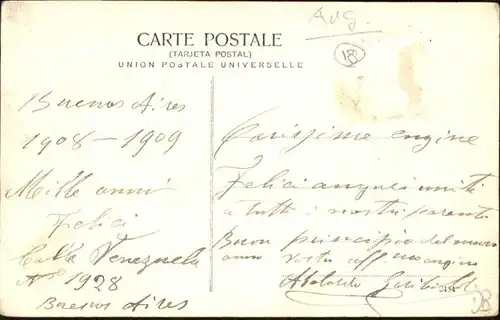 Arg.
18
CARTE POSTALE
(TARJETA POSTAL)
UNION POSTALE UNIVERSELLE
Buenos Aires
1908-1909
Mille anni
Felici
Calle Venezuela
Nº 1928
Buenos Aires
Carissime cugine
Felici auguri uniti
a tutti i nostri parenti
Buon principio del nuovo
anno vostro aff mo cugino